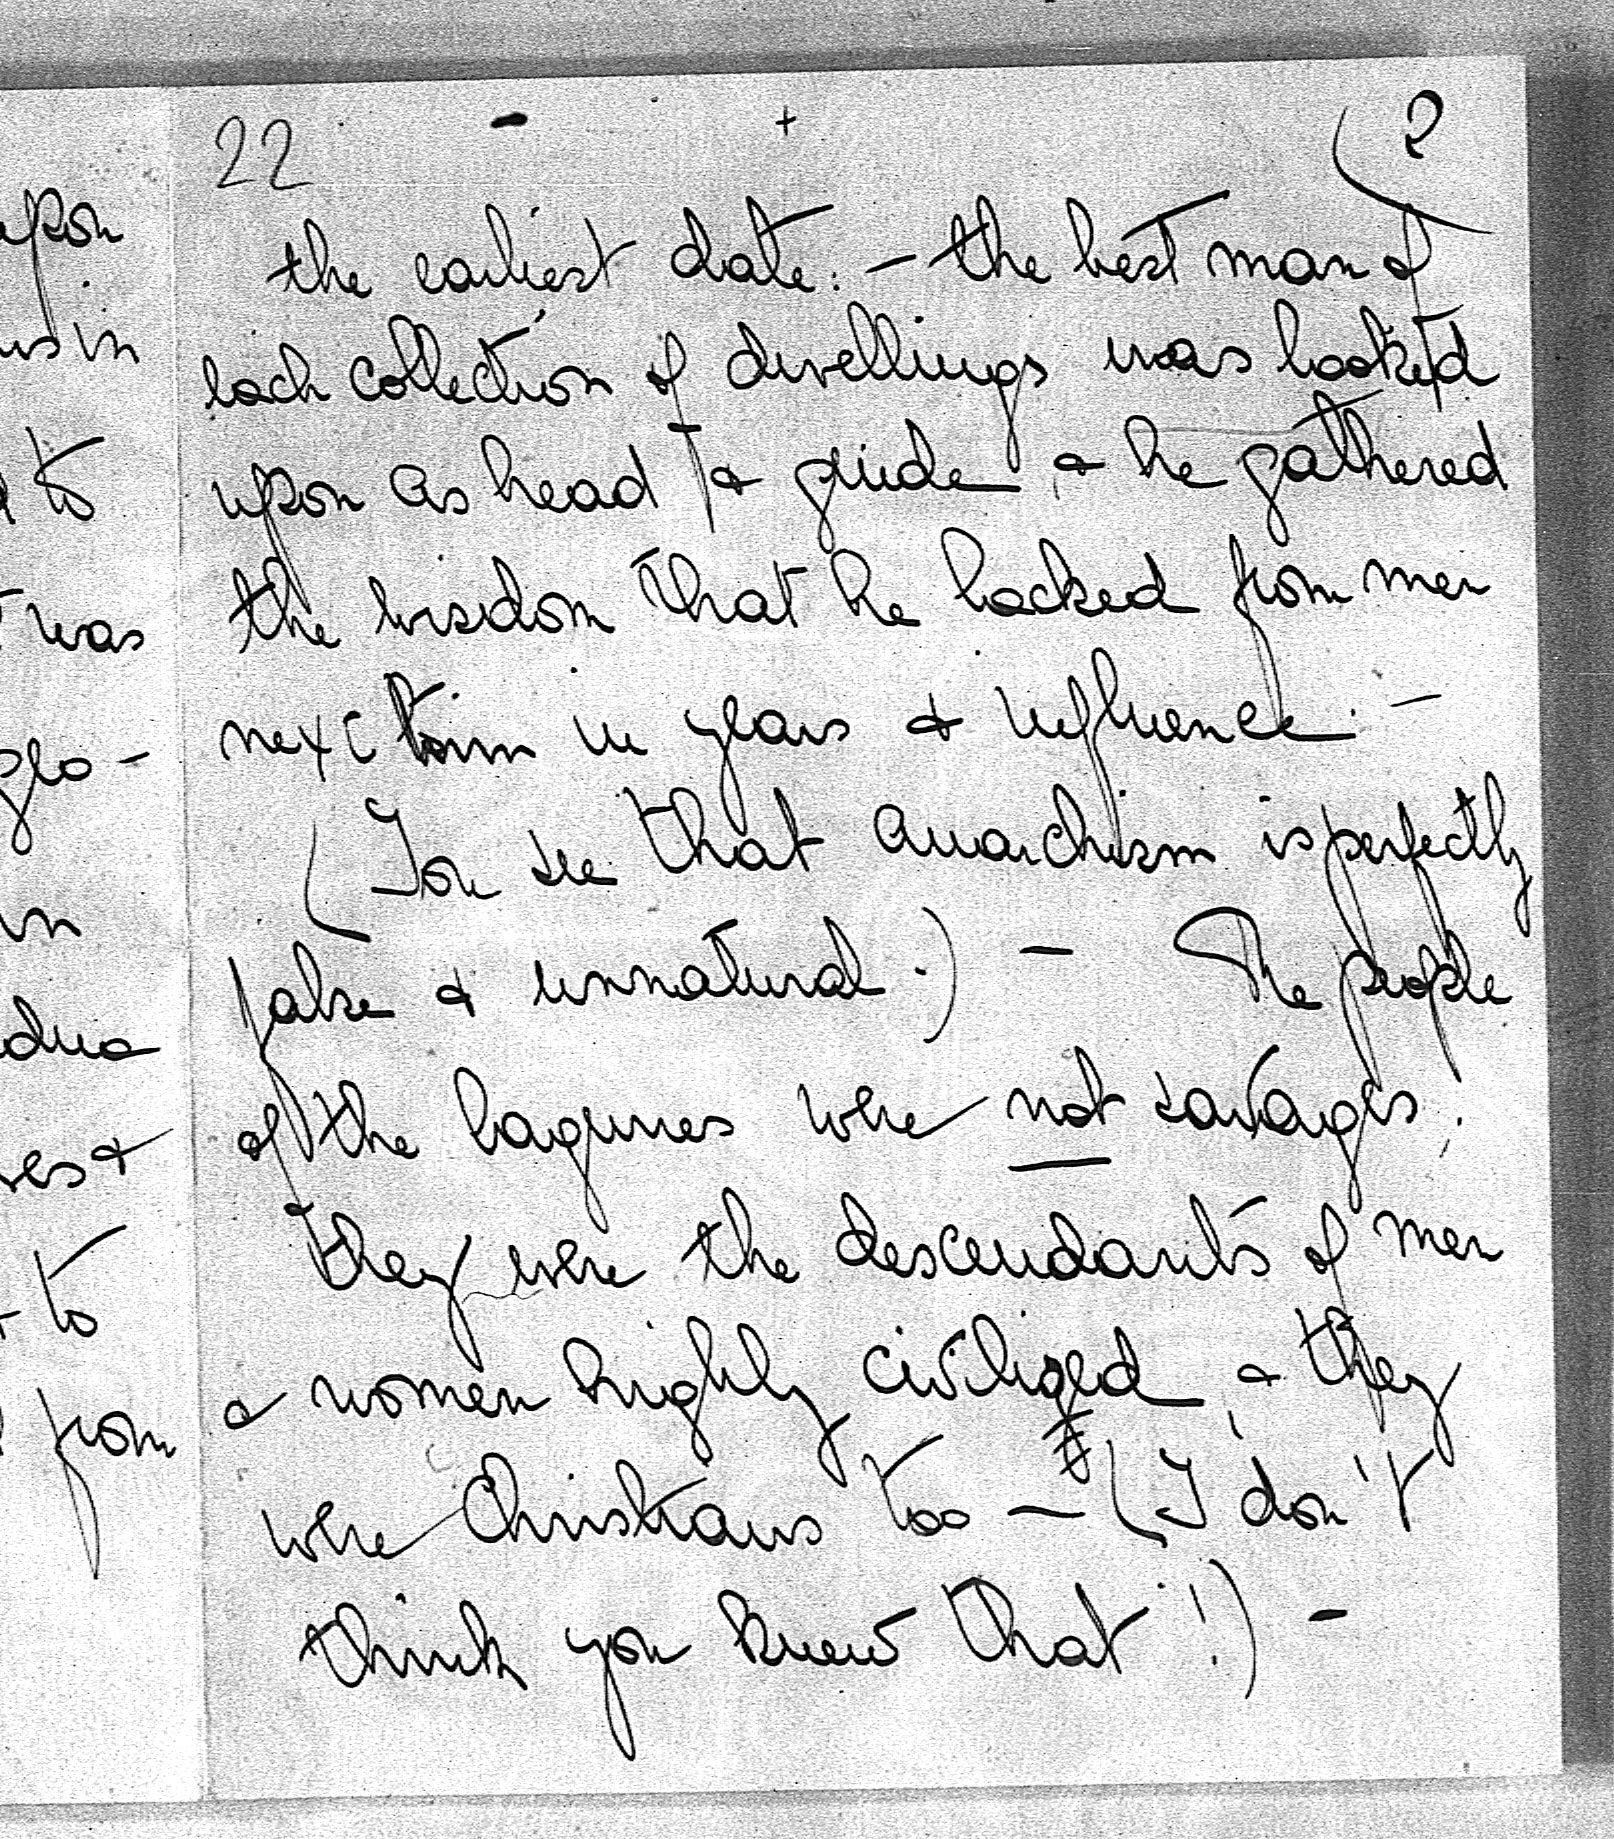 upon
us in
to
was
glo-
in
dua
ves &
to
from
22 - + (2
the earliest date: - the best man of
each collection of dwellings was looked
upon as head & guide & he gathered
the wisdom that he lacked from men
next him in years & influence. -
(You see that anarchism is perfectly
false & unnatural.) - The people
of the lagunes were not savages:
they were the descendants of men
& women highly civilized, & they
were Christians too - (I don't
think you knew that!) -